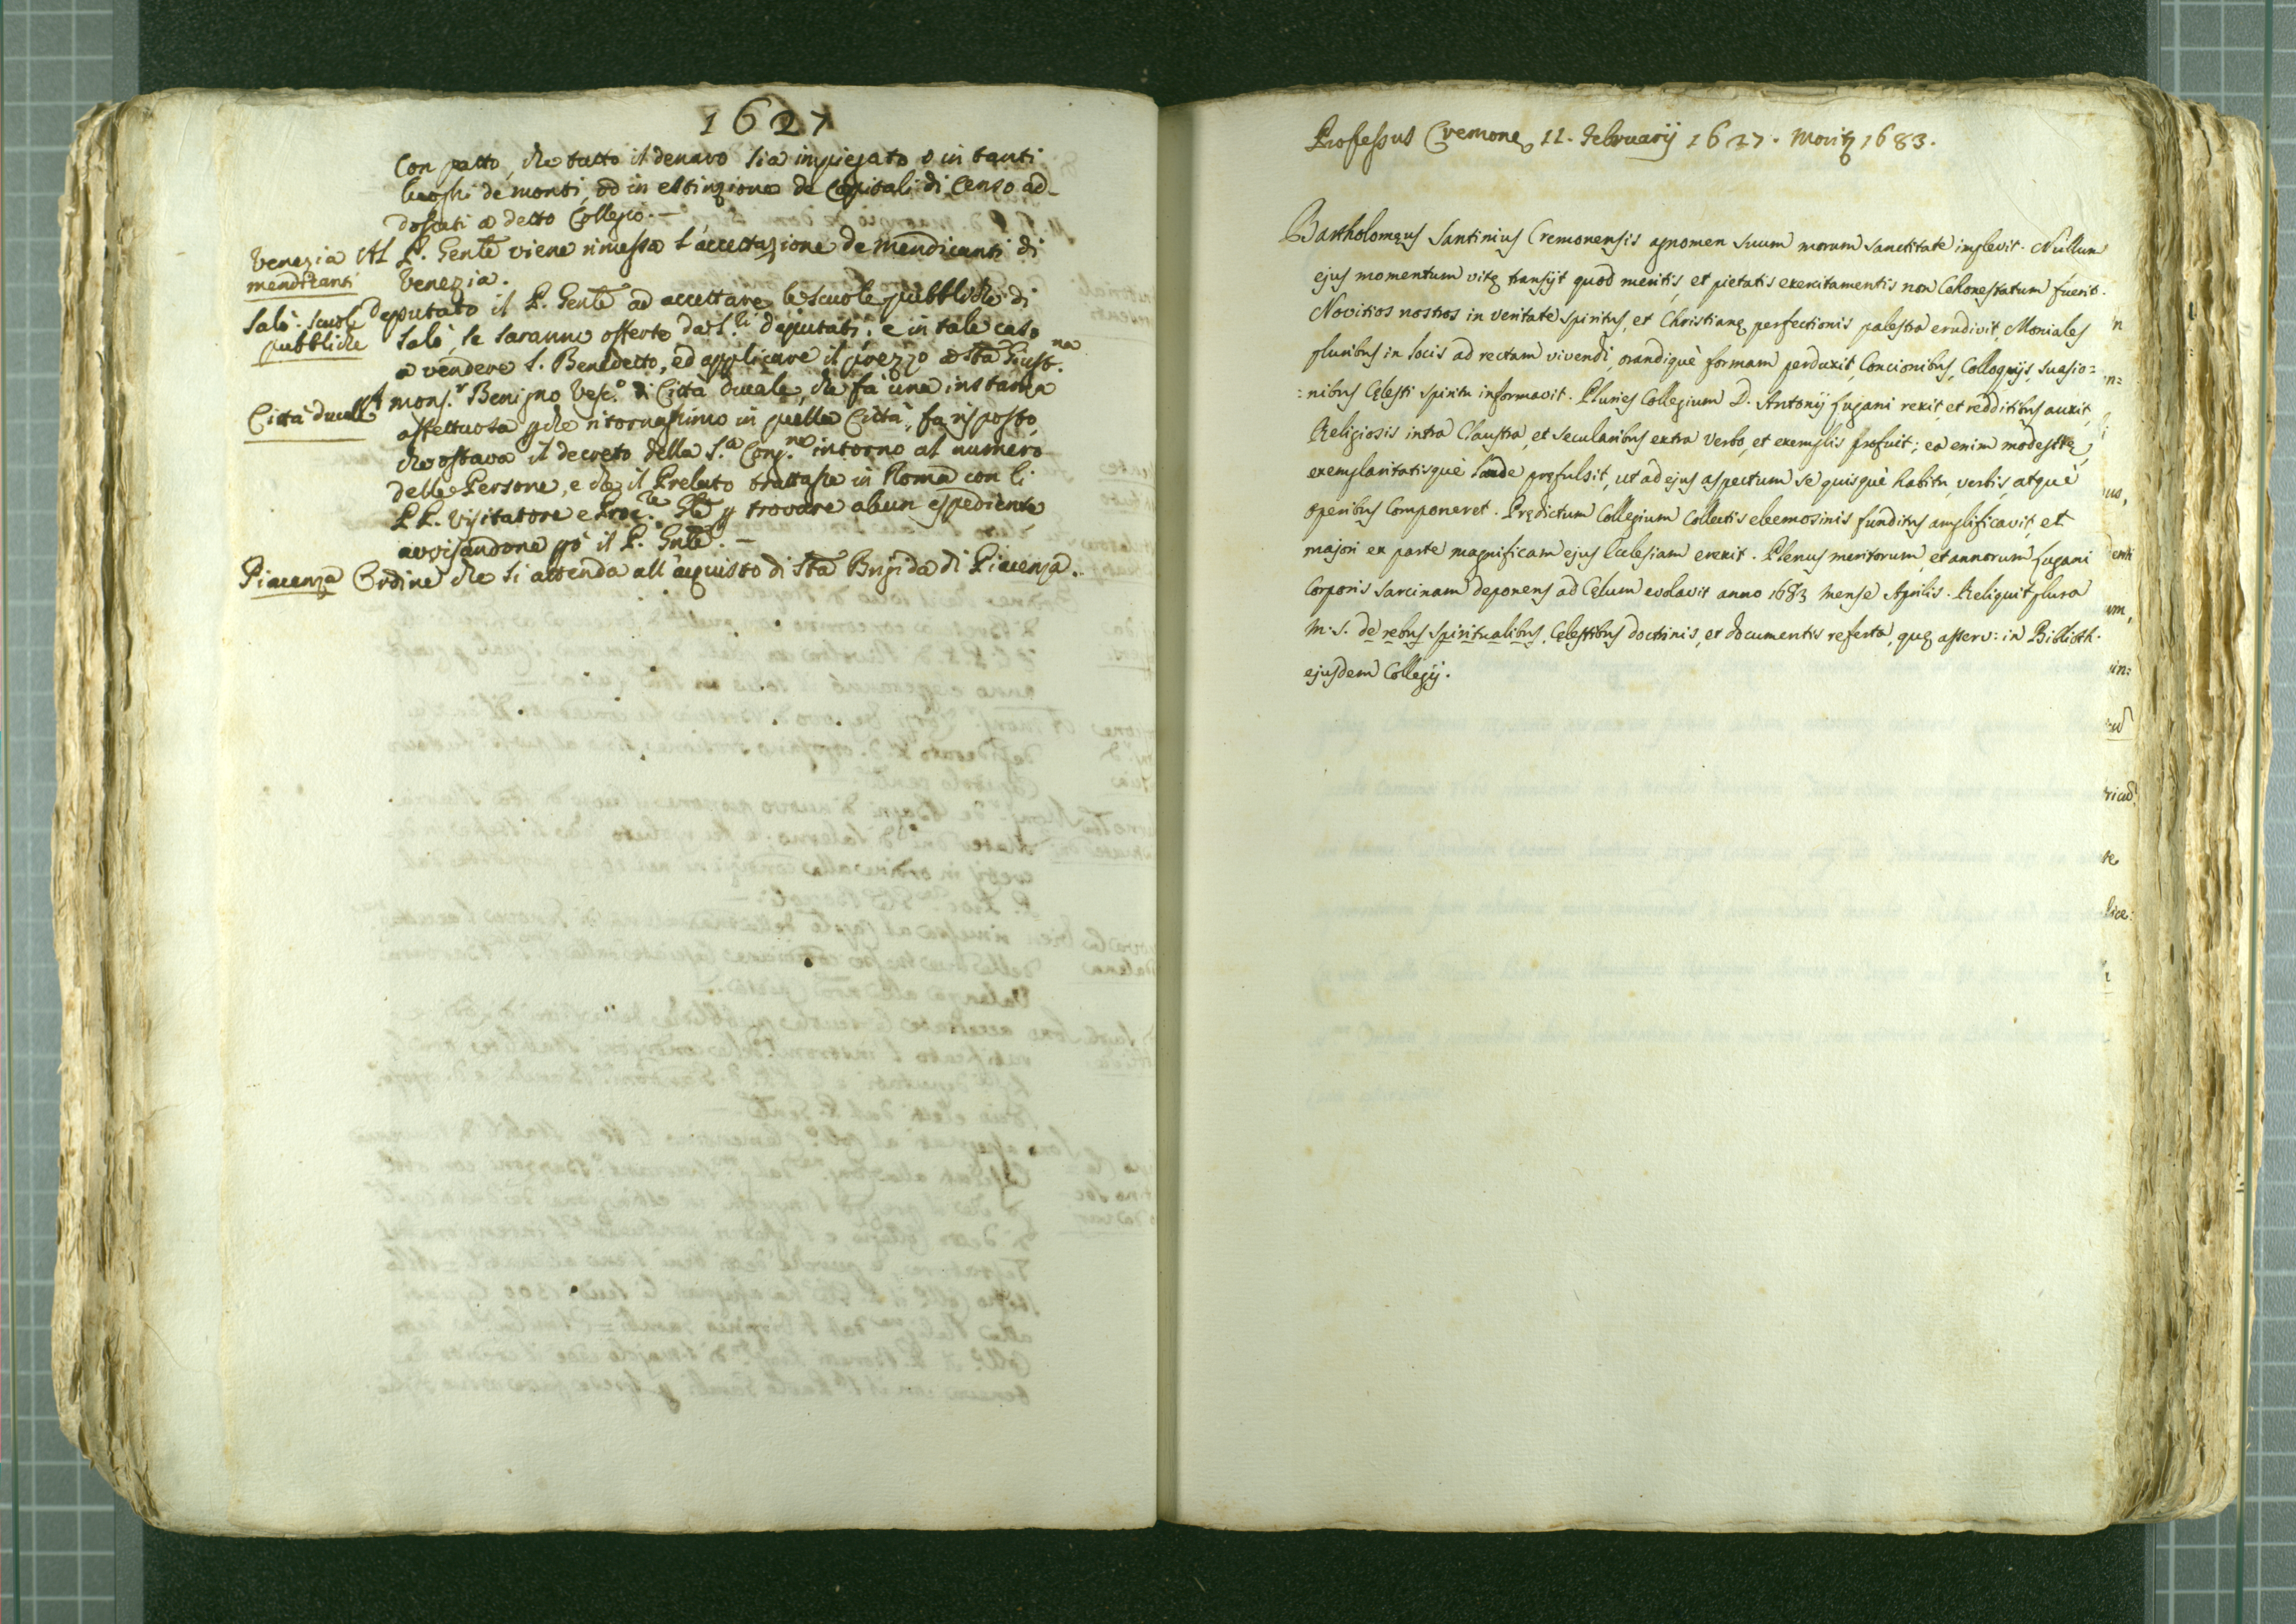 1627
Con patto, che tutto il denaro sia impiegato o in tanti
luoghi de monti, od in estinzione de Capitali di Censo ad-
dossati a detto Collegio. —
Venezia
mendicanti
Al P. Gen̅le viene rimessa l'accettazione de Mendicanti di
Venezia.
Salò. Scuole
pubbliche
Deputato il P. Gen̅le ad accettare le scuole pubbliche di
Salò, se saranno offerte da S.ri deputati; e in tale caso
a vendere S. Benedetto, ed applicare il prezzo a S̅ta Giust.na
Città ducale
A mons.r Benigno Vesc.o di Città ducale, che fa una instanza
affettuosa ꝑche ritornassimo in quella Città, fu risposto,
che ostava il decreto della S.a Cong.ne intorno al numero
delle Persone, e che il Prelato trattasse in Roma con li
PP. Visitatore e Proc.re Gle ꝑ trovare alcun espediente
avvisandone poi il P. Gn̅le. —
Piacenza
Ordine che si attenda all'acquisto di S̅ta Brigida di Piacenza.
Professus Cremonę 11. Februarij 1627. Moritꝛ 1683.
Bartholomęus Santinius Cremonensis agnomen suum morum sanctitate implevit. Nullum
ejus momentum vitę transijt quod meritis, et pietatis exercitamentis non Cohonestatum fuerit.
Novitios nostros in veritate spiritus, et Christianę perfectionis palestra erudivit, Moniales
pluribus in locis ad rectam vivendi, orandiquè formam perduxit, Concionibus, Colloquijs, suasio=
=nibus Cęlesti spiritu informavit. Pluries Collegium D. Antonij Lugani rexit, et redditibus auxit,
Religiosis intra Claustra, et secularibus extra verbo, et exemplis profuit; ea enim modestię,
exemplaritatisquè laude pręfulsit, ut ad ejus aspectum se quisquè habitu, verbis, atquè
operibus Componeret. Prędictum Collegium Collectis eleemosinis funditus amplificavit, et
majori ex parte magnificam ejus Ecclesiam erexit. Plenus meritorum, et annorum Lugani
Corporis sarcinam deponens ad Cęlum evolavit anno 1683 mense Aprilis. Reliquit plura
m.s. de rebus spiritualibus, Cęlestibus doctrinis, et documentis referta, quę asserv: in Biblioth.
ejusdem Collegij.